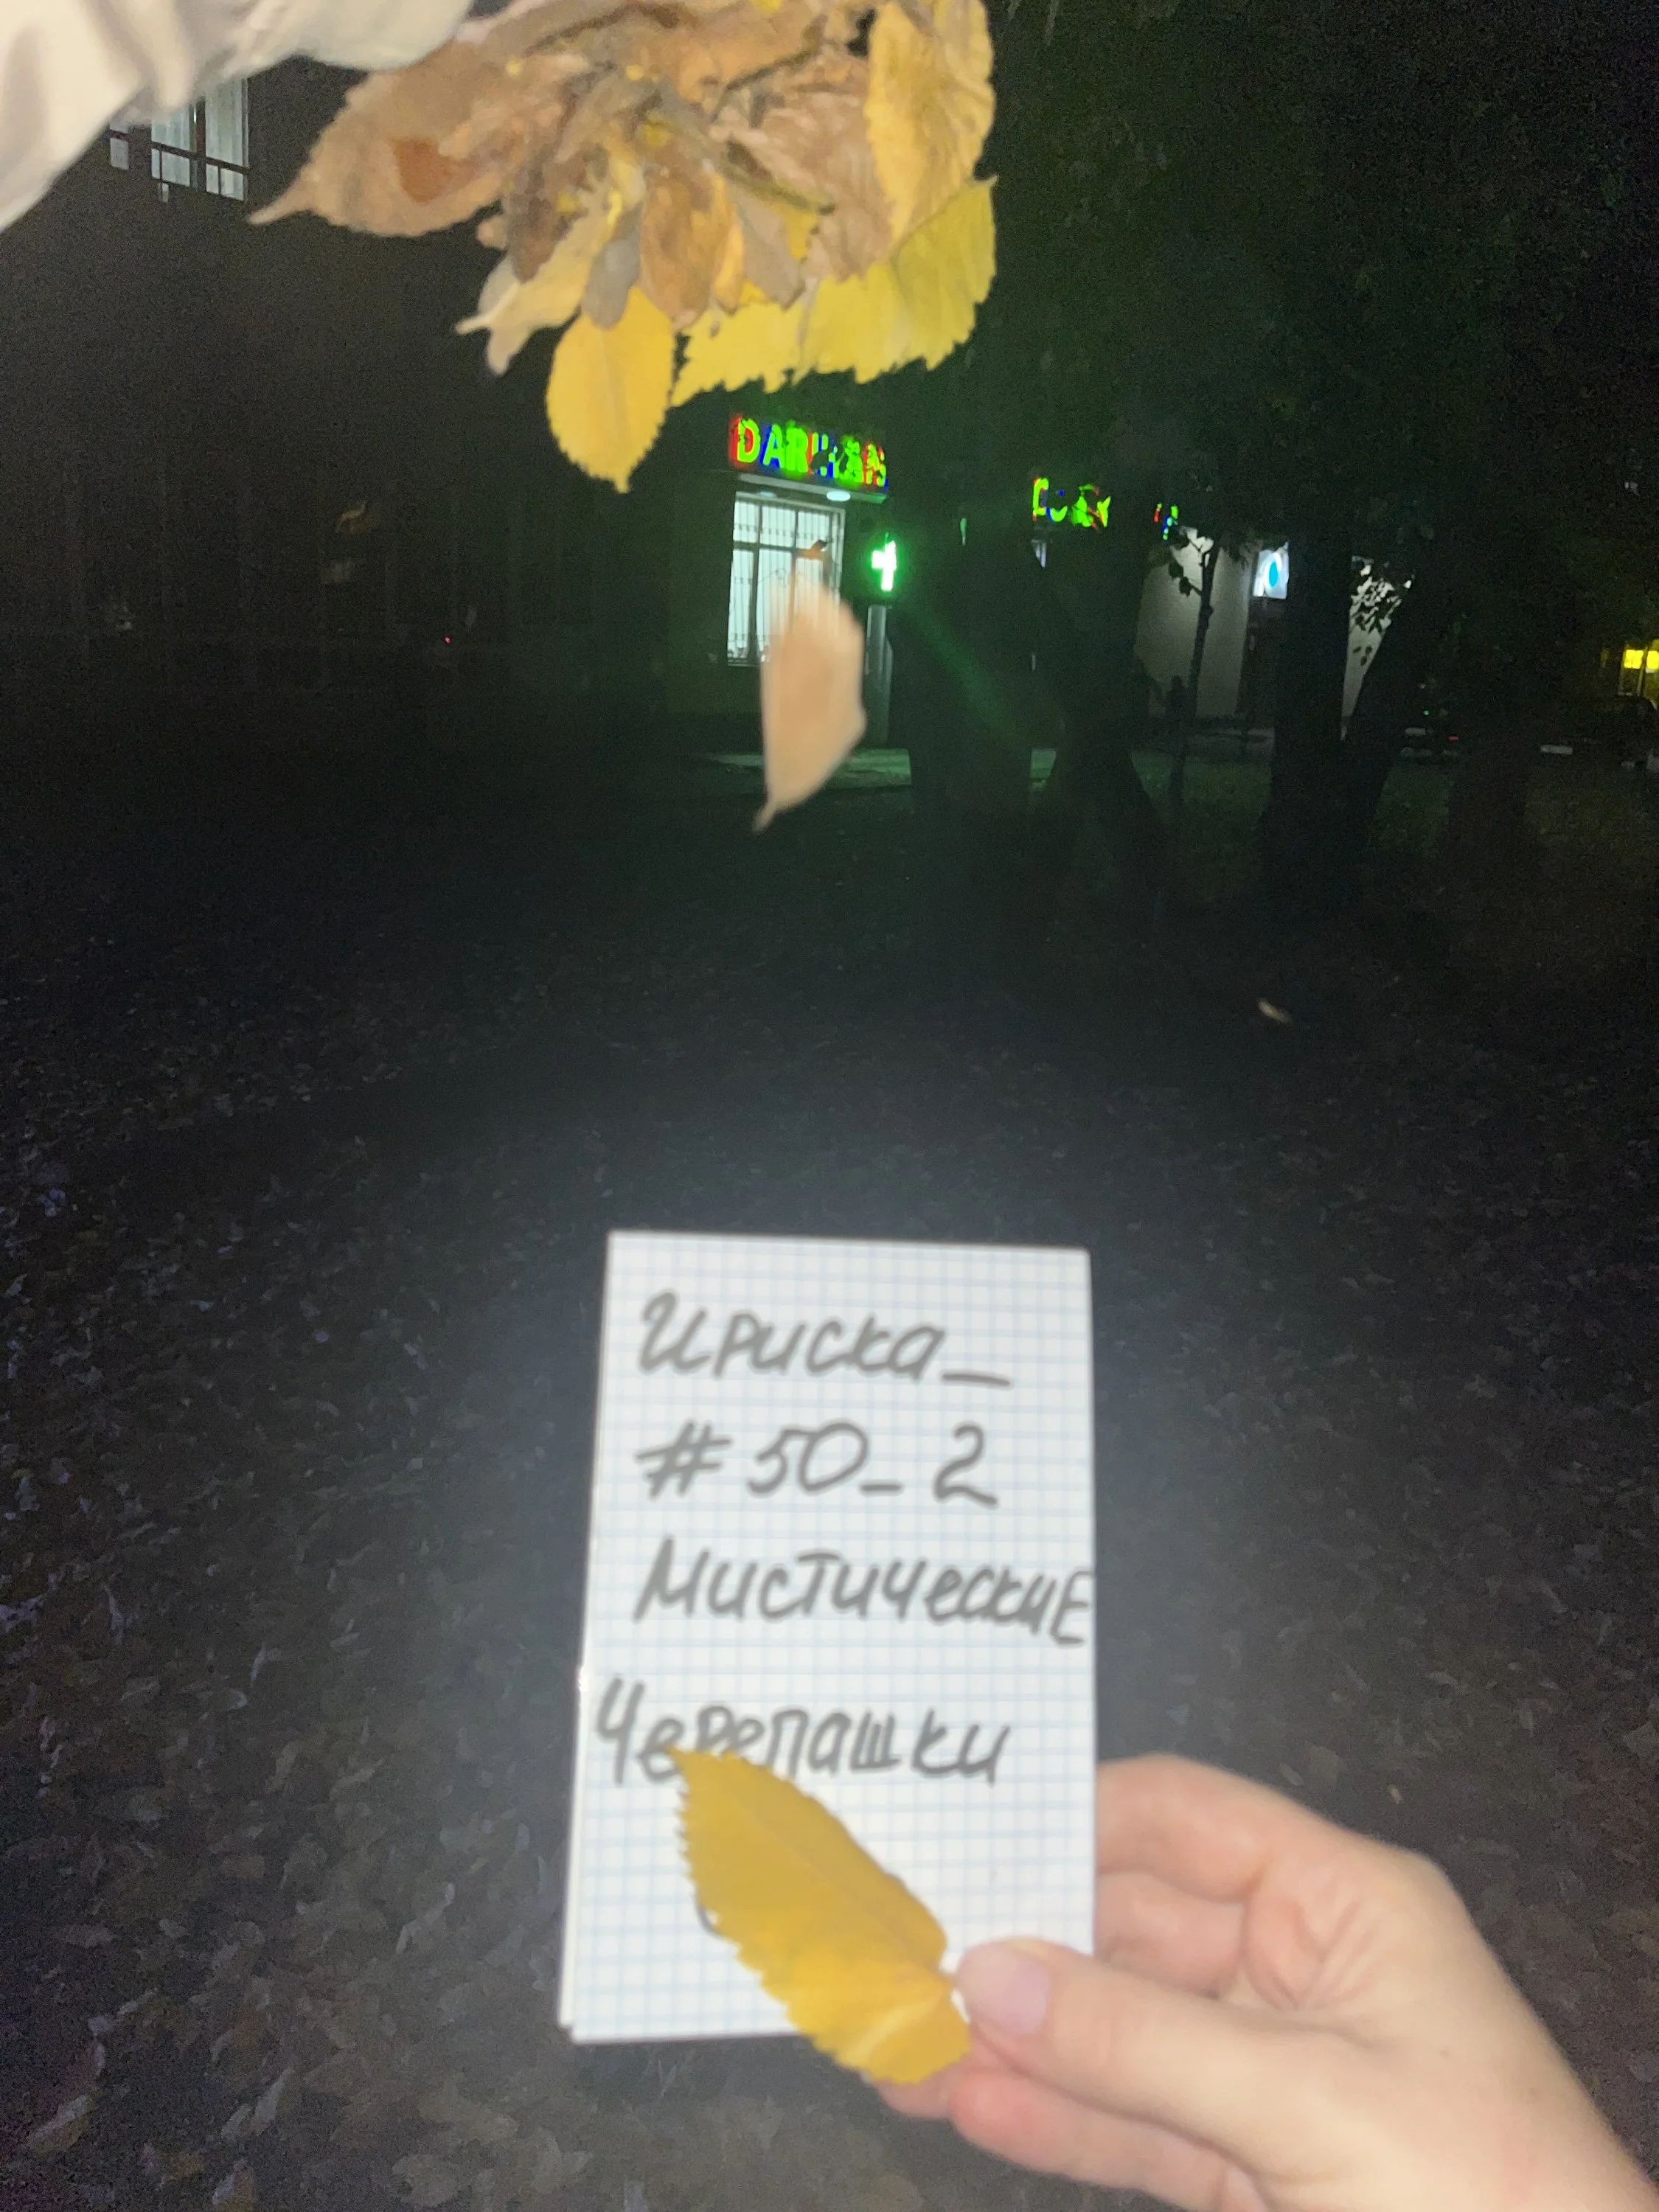 DARKHAN
Ириска_
#50_2
МистическиЕ
Черепашки